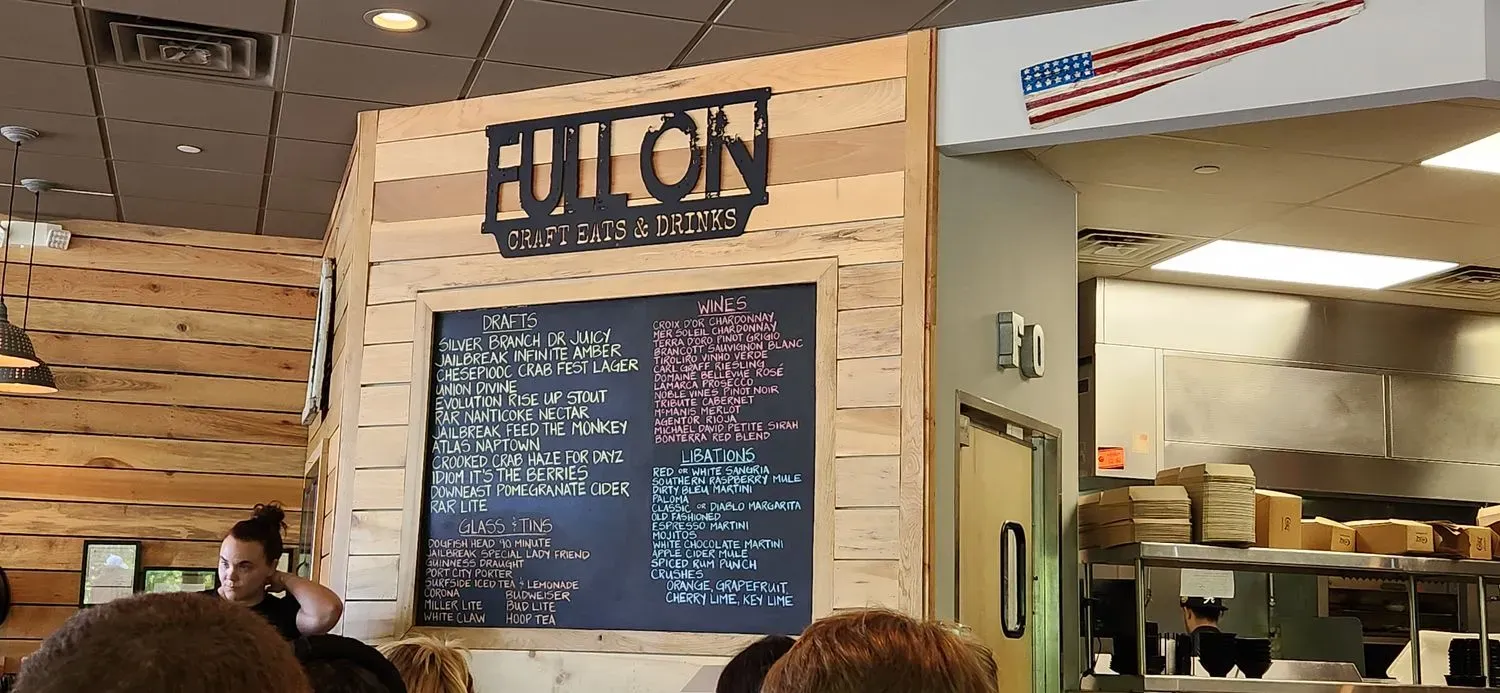 FULL ON
CRAFT EATS & DRINKS
DRAFTS
SILVER BRANCH DR JUICY
JAILBREAK INFINITE AMBER
CHESEPIOOC CRAB FEST LAGER
UNION DIVINE
EVOLUTION RISE UP STOUT
RAR NANTICOKE NECTAR
JAILBREAK FEED THE MONKEY
ATLAS NAPTOWN
CROOKED CRAB HAZE FOR DAYZ
IDIOM IT'S THE BERRIES
DOWNEAST POMEGRANATE CIDER
RAR LITE
GLASS & TINS
DOGFISH HEAD 90 MINUTE
JAILBREAK SPECIAL LADY FRIEND
GUINNESS DRAUGHT
PORT CITY PORTER
SURFSIDE ICED TEA & LEMONADE
CORONA BUDWEISER
MILLER LITE BUD LITE
WHITE CLAW HOOP TEA
WINES
CROIX D'OR CHARDONNAY
MER SOLEIL CHARDONNAY
TERRA D'ORO PINOT GRIGIO
BRANCOTT SAUVIGNON BLANC
TIROLIRO VINHO VERDE
CARL GRAFF RIESLING
DOMAINE BELLEVUE ROSE
LAMARCA PROSECCO
NOBLE VINES PINOT NOIR
TRIBUTE CABERNET
MCMANIS MERLOT
AGENTOR RIOJA
MICHAEL DAVID PETITE SIRAH
BONTERRA RED BLEND
LIBATIONS
RED OR WHITE SANGRIA
SOUTHERN RASPBERRY MULE
DIRTY BLEU MARTINI
PALOMA
CLASSIC OR DIABLO MARGARITA
OLD FASHIONED
ESPRESSO MARTINI
MOJITOS
WHITE CHOCOLATE MARTINI
APPLE CIDER MULE
SPICED RUM PUNCH
CRUSHES
ORANGE, GRAPEFRUIT,
CHERRY LIME, KEY LIME
FO